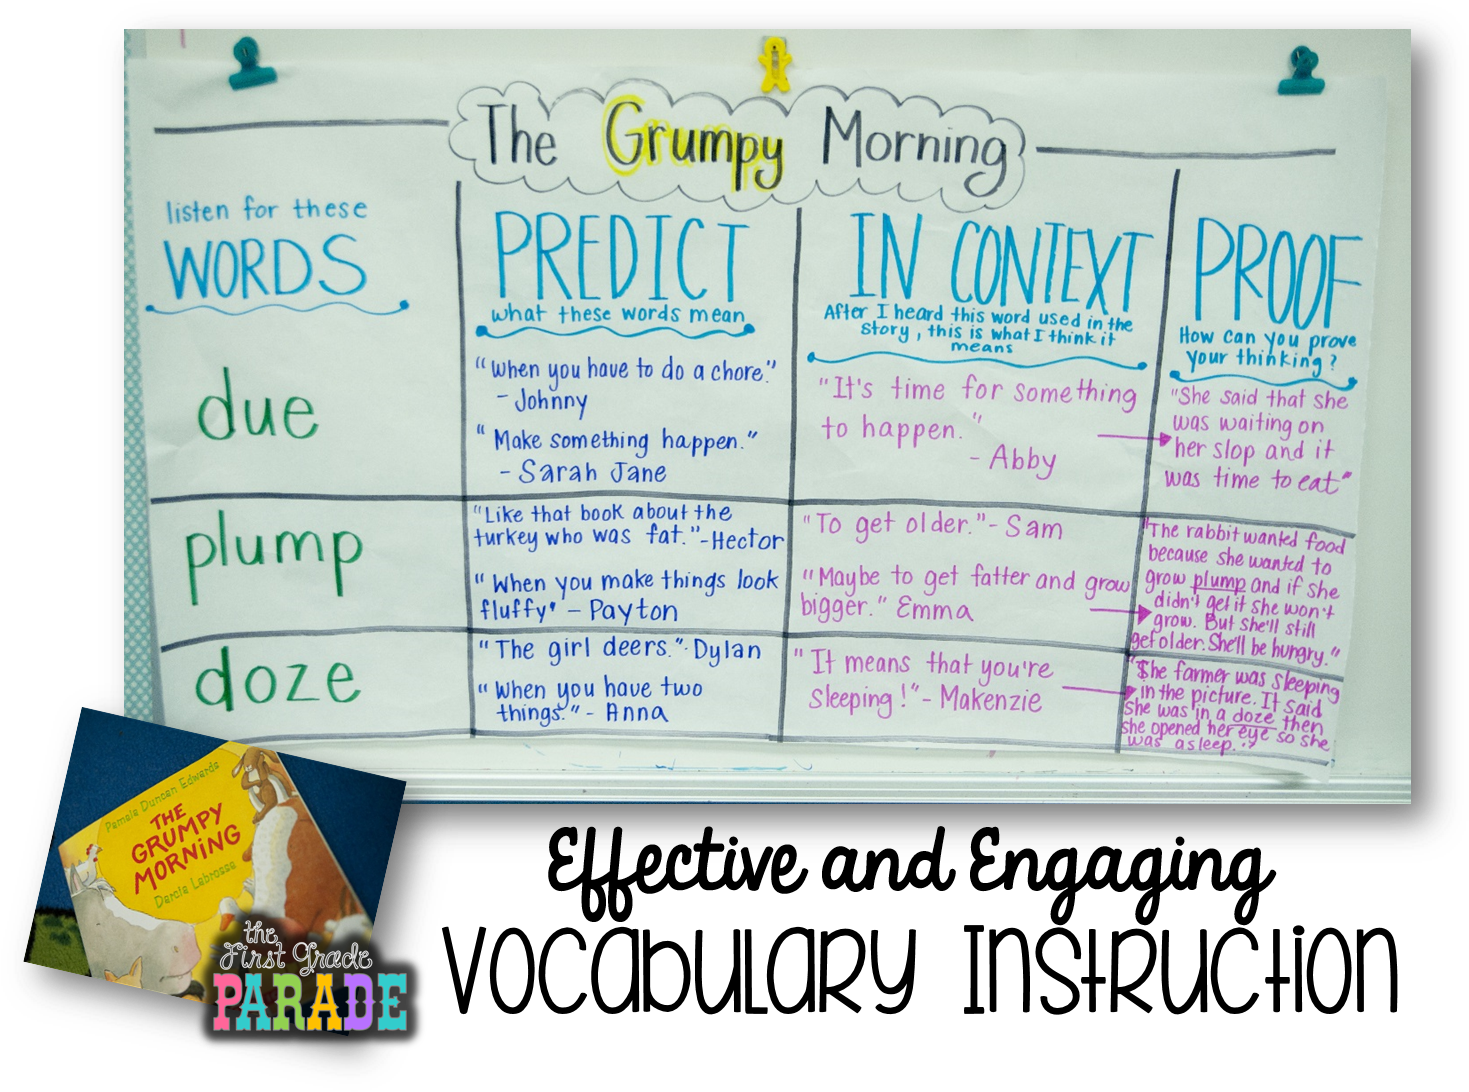 The Grumpy Morning
listen for these
WORDS
PREDICT
what these words mean
IN CONTEXT
After I heard this word used in the
story, this is what I think it
means
PROOF
How can you prove
your thinking?
due
"When you have to do a chore."
- Johnny
"Make something happen."
- Sarah Jane
"It's time for something
to happen."
- Abby
"She said that she
was waiting on
her slop and it
was time to eat"
plump
"Like that book about the
turkey who was fat."-Hector
"When you make things look
fluffy" - Payton
"To get older."- Sam
"Maybe to get fatter and grow
bigger." Emma
"The rabbit wanted food
because she wanted to
grow plump and if she
didn't get it she won't
grow. But she'll still
get older. She'll be hungry."
doze
"The girl deers."-Dylan
"When you have two
things." - Anna
"It means that you're
sleeping!"- Makenzie
"She farmer was sleeping
in the picture. It said
she was in a doze then
she opened her eye so she
was asleep."
Pamela Duncan Edwards
THE
GRUMPY
MORNING
Darcia Labrosse
the
First Grade
PARADE
Effective and Engaging
Vocabulary Instruction